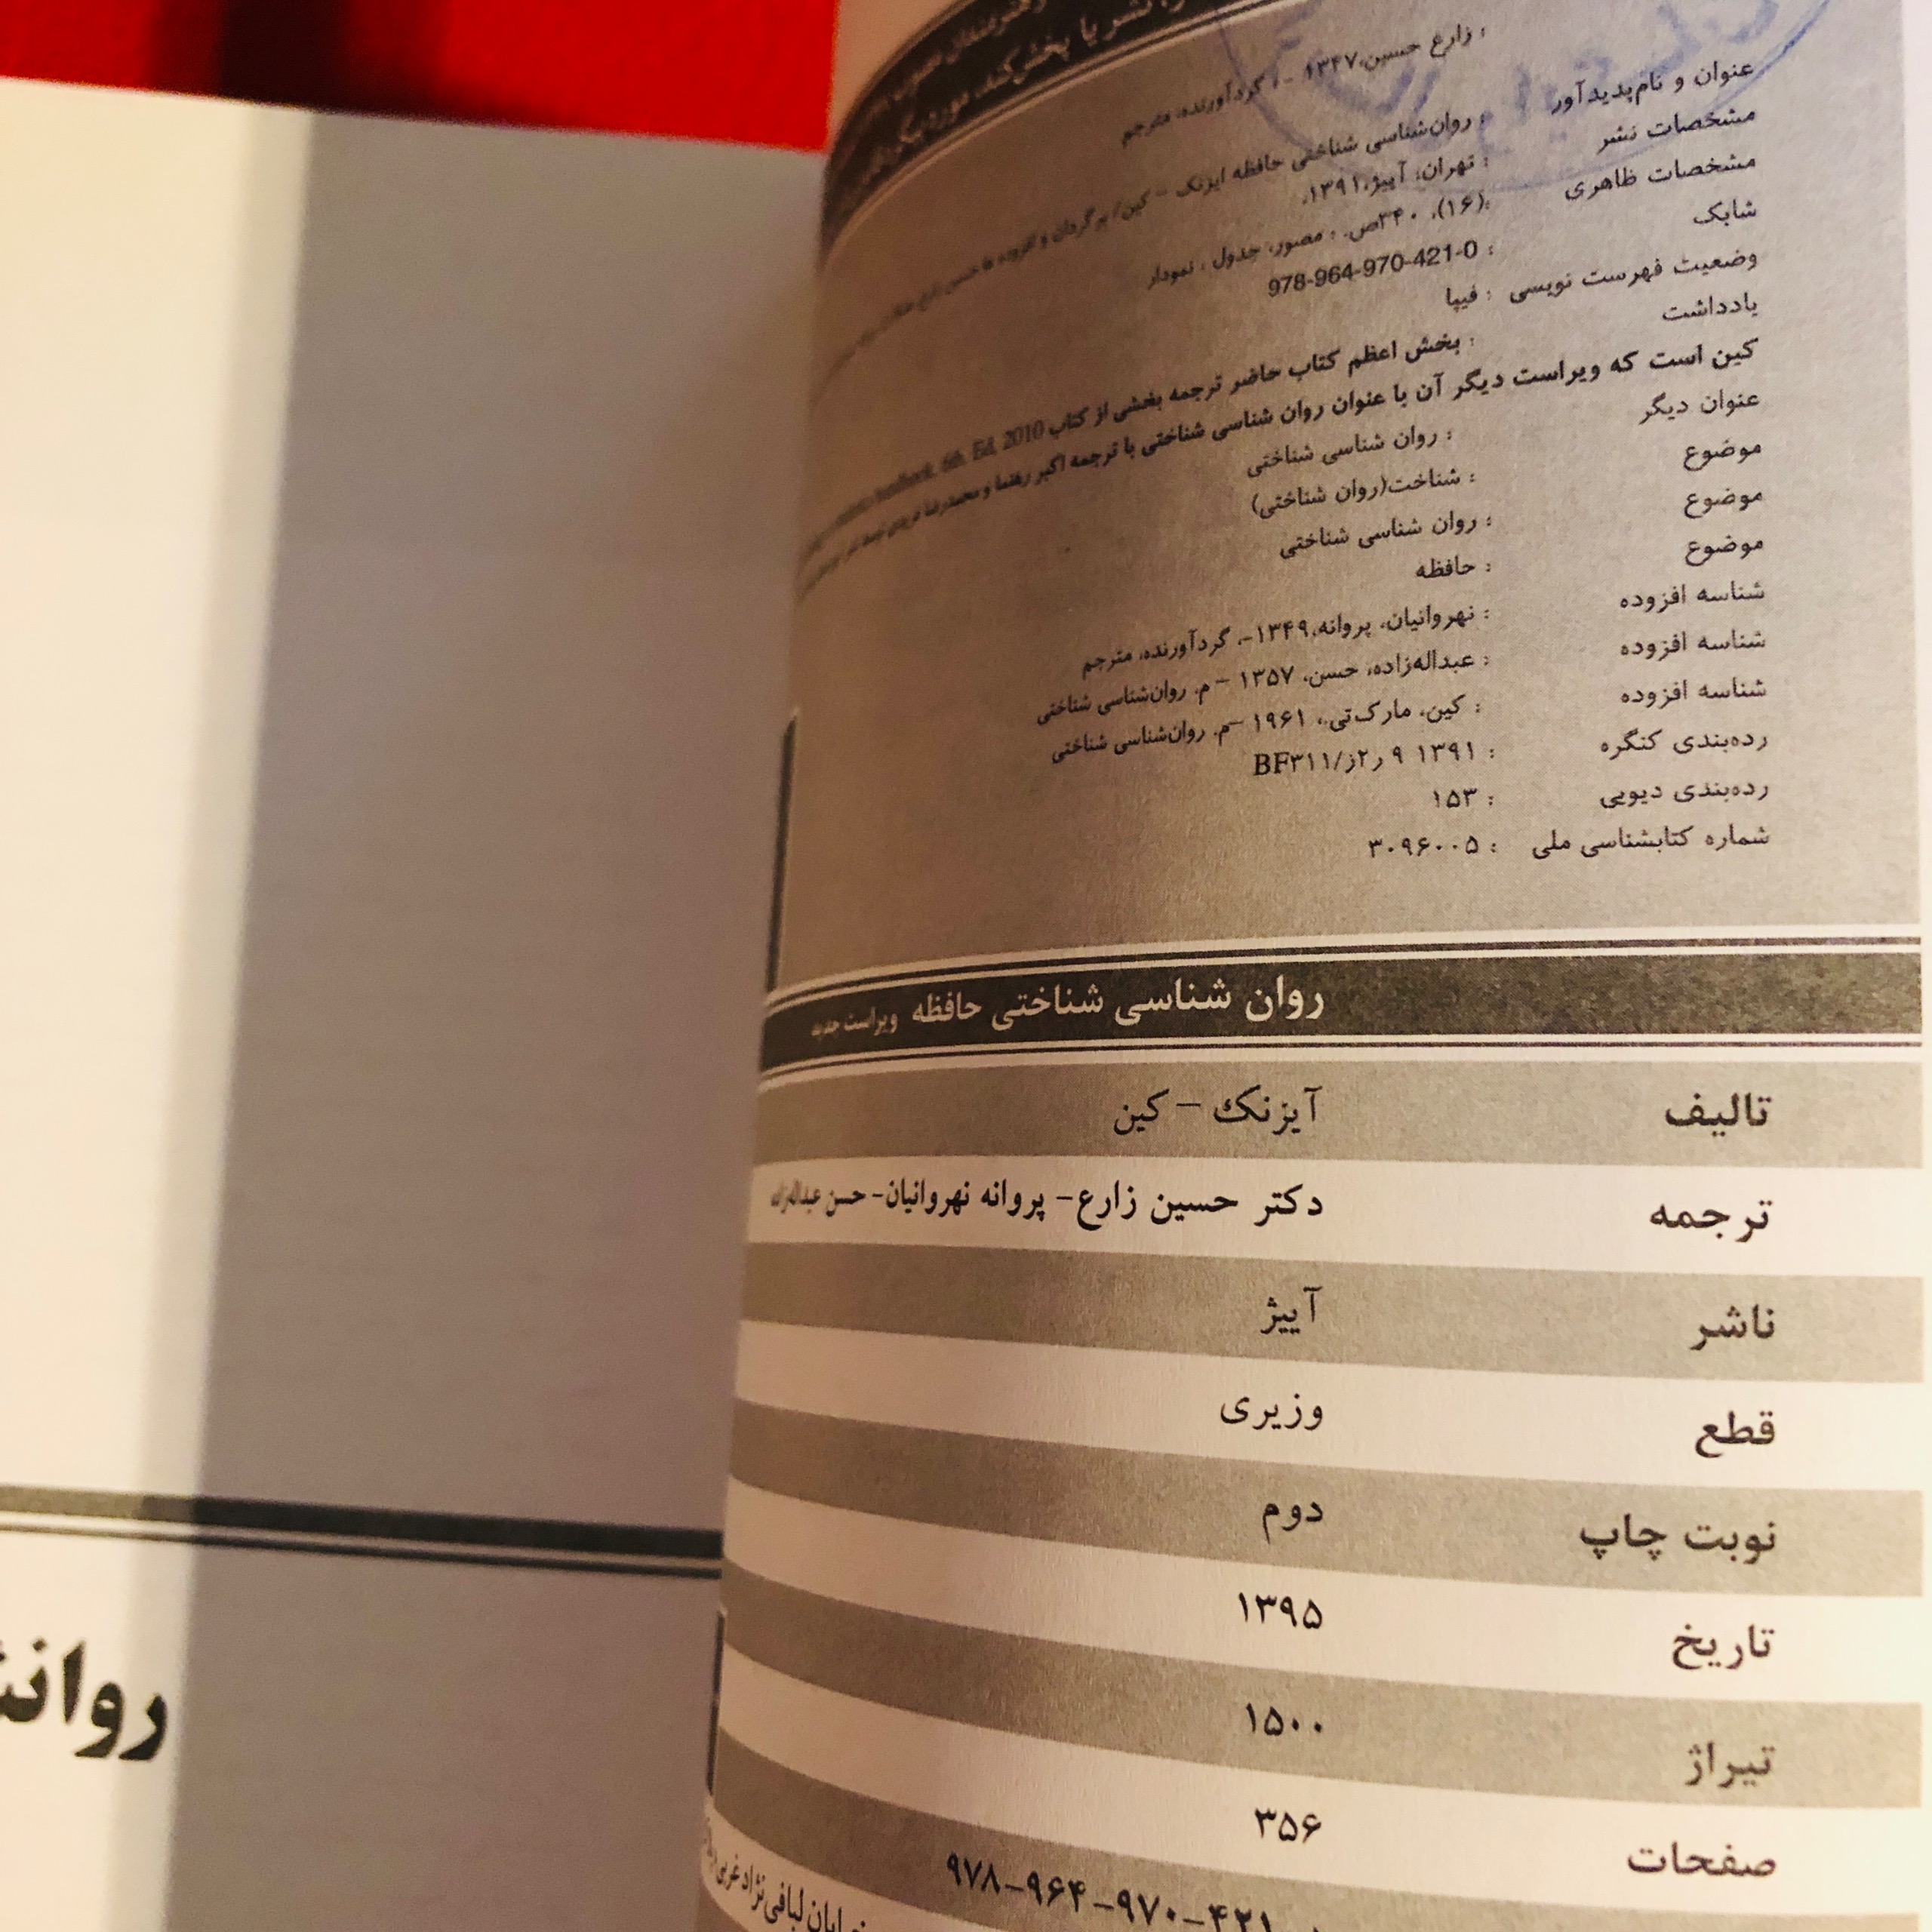 نشر یا پخش کند، مورد پیگرد
: زارع حسین،۱۳۴۷ - ، گردآورنده، مترجم
عنوان و نام‌پدیدآور : روان‌شناسی شناختی حافظه ایزنک – کین/ برگردان و افزوده ها حسین زارع
مشخصات نشر : تهران: آییژ،۱۳۹۱.
مشخصات ظاهری :(۱۶)، ۳۴۰ص. : مصور، جدول ، نمودار
شابک : 978-964-970-421-0
وضعیت فهرست نویسی : فیپا
یادداشت : بخش اعظم کتاب حاضر ترجمه بخشی از کتاب 6th. Ed, 2010
کین است که ویراست دیگر آن با عنوان روان شناسی شناختی با ترجمه اکبر رهنما و محمدرضا
عنوان دیگر : روان شناسی شناختی
موضوع : شناخت(روان شناختی)
موضوع : روان شناسی شناختی
موضوع : حافظه
شناسه افزوده : نهروانیان، پروانه،۱۳۴۹-، گردآورنده، مترجم
شناسه افزوده : عبداله‌زاده، حسن، ۱۳۵۷ – م. روان‌شناسی شناختی
شناسه افزوده : کین، مارک‌تی.، ۱۹۶۱ –م. روان‌شناسی شناختی
رده‌بندی کنگره : ۱۳۹۱ ۹ ر۲ز/BF۳۱۱
رده‌بندی دیویی : ۱۵۳
شماره کتابشناسی ملی : ۳۰۹۶۰۰۵
روان شناسی شناختی حافظه ویراست جدید
تالیف آیزنک – کین
ترجمه دکتر حسین زارع- پروانه نهروانیان- حسن عبداله‌زاده
ناشر آییژ
قطع وزیری
نوبت چاپ دوم
تاریخ ۱۳۹۵
تیراژ ۱۵۰۰
صفحات ۳۵۶
۹۷۸-۹۶۴-۹۷۰-۴۲۱
خیابان لبافی‌نژاد غربی